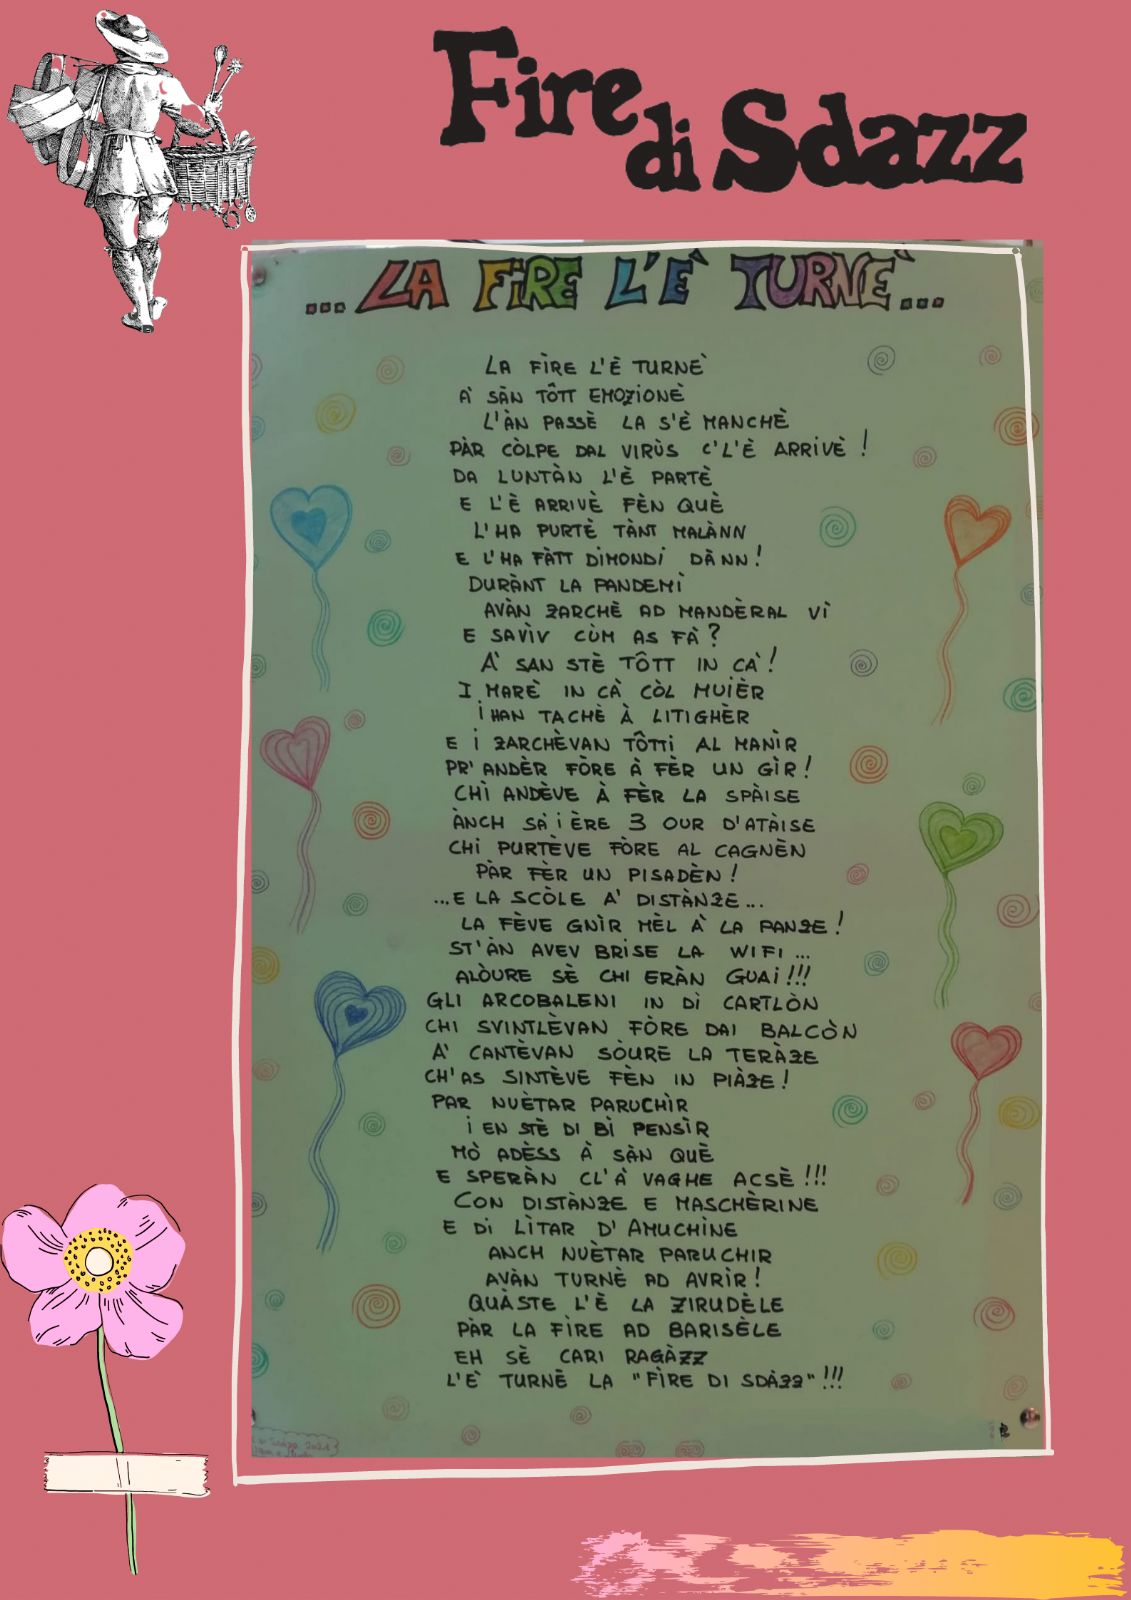 Fire di Sdazz
...LA FIRE L'È TURNÈ...
LA FÌRE L'È TURNÈ
A' SÀN TÔTT EMOZIONÈ
L'ÀN PASSÈ LA S'È MANCHÈ
PÀR CÒLPE DAL VIRÙS C'L'È ARRIVÈ!
DA LUNTÀN L'È PARTÈ
E L'È ARRIVÈ FÈN QUÈ
L'HA PURTÈ TÀNT MALÀNN
E L'HA FÀTT DIMONDI DÀNN!
DURÀNT LA PANDEMÌ
AVÀN ZARCHÈ AD MANDÈRAL VÌ
E SAVÌV CÙM AS FÀ?
A' SAN STÈ TÔTT IN CÀ!
I MARÈ IN CÀ CÒL MUIÈR
I HAN TACHÈ À LITIGHÈR
E I ZARCHÈVAN TÔTTI AL MANÌR
PR'ANDÈR FÒRE À FÈR UN GÌR!
CHÌ ANDÈVE À FÈR LA SPÀISE
ÀNCH SÀ I ÈRE 3 OUR D'ATÀISE
CHI PURTÈVE FÒRE AL CAGNÈN
PÀR FÈR UN PISADÈN!
...E LA SCÒLE A' DISTÀNZE...
LA FÈVE GNÌR MÈL À LA PANZE!
ST'ÀN AVEV BRISE LA WIFI...
ALÒURE SÈ CHI ERÀN GUAI!!!
GLI ARCOBALENI IN DÌ CARTLÒN
CHI SVINTLÈVAN FÒRE DAI BALCÒN
A' CANTÈVAN SÒURE LA TERÀZE
CH'AS SINTÈVE FÈN IN PIÀZE!
PAR NUÈTAR PARUCHÌR
I EN STÈ DI BÌ PENSÌR
MÒ ADÈSS À SÀN QUÈ
E SPERÀN CL'À VAGHE ACSÈ!!!
CON DISTÀNZE E MASCHÈRINE
E DI LÌTAR D'AMUCHÌNE
ANCH NUÈTAR PARUCHIR
AVÀN TURNÈ AD AVRÌR!
QUÀSTE L'È LA ZIRUDÈLE
PÀR LA FÌRE AD BARISÈLE
EH SÈ CARI RAGÀZZ
L'È TURNÈ LA "FÌRE DI SDÀZZ"!!!